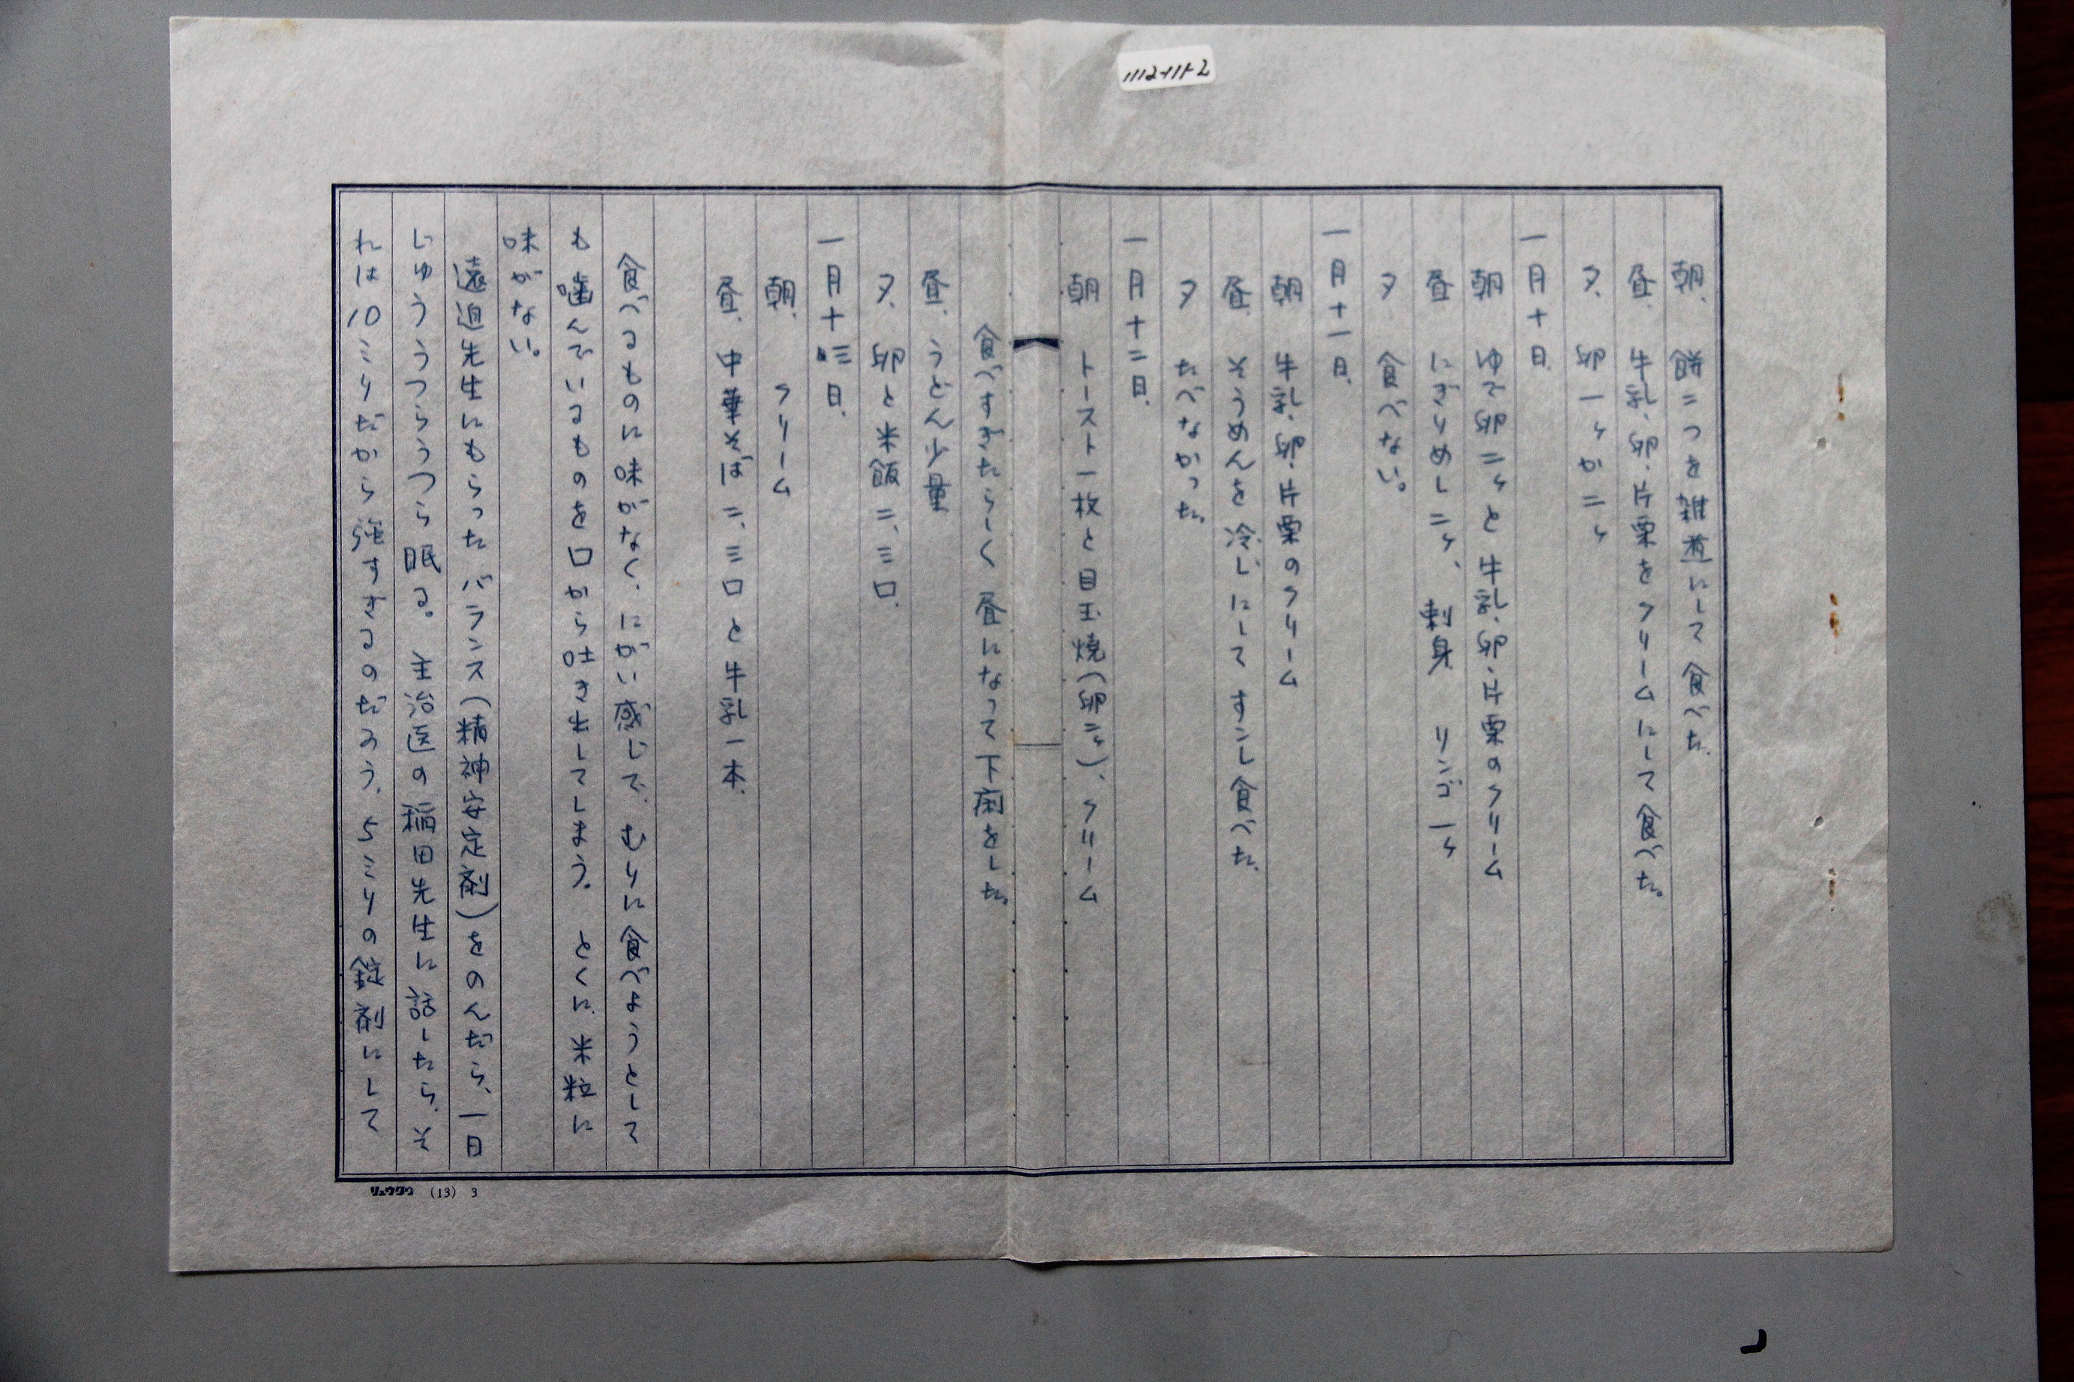 朝、餅二つを雑煮にして食べた。
昼、牛乳、卵、片栗をクリームにして食べた。
夕、卵一ヶか二ヶ
一月十日、
朝 ゆで卵二ヶと牛乳、卵、片栗のクリーム
昼 にぎりめし二ヶ、刺身 リンゴ一ヶ
夕 食べない。
一月十一日、
朝 牛乳、卵、片栗のクリーム
昼 そうめんを冷しにしてすこし食べた、
夕 たべなかった。
一月十二日、
朝 トースト一枚と目玉焼(卵二ヶ)、クリーム
食べすぎたらしく昼になって下痢をした。
昼、うどん少量
夕、卵と米飯二、三口、
一月十三日、
朝、 クリーム
昼、中華そば二、三口と牛乳一本、
食べるものに味がなく、にがい感じで、むりに食べようとして
も噛んでいるものを口から吐き出してしまう。とくに、米粒に
味がない。
遠迫先生にもらったバランス(精神安定剤)をのんだら、一日
じゅううつらうつら眠る。主治医の稲田先生に話したら、そ
れは10ミリだから強すぎるのだろう、5ミリの錠剤にして
リュウグウ (13) 3